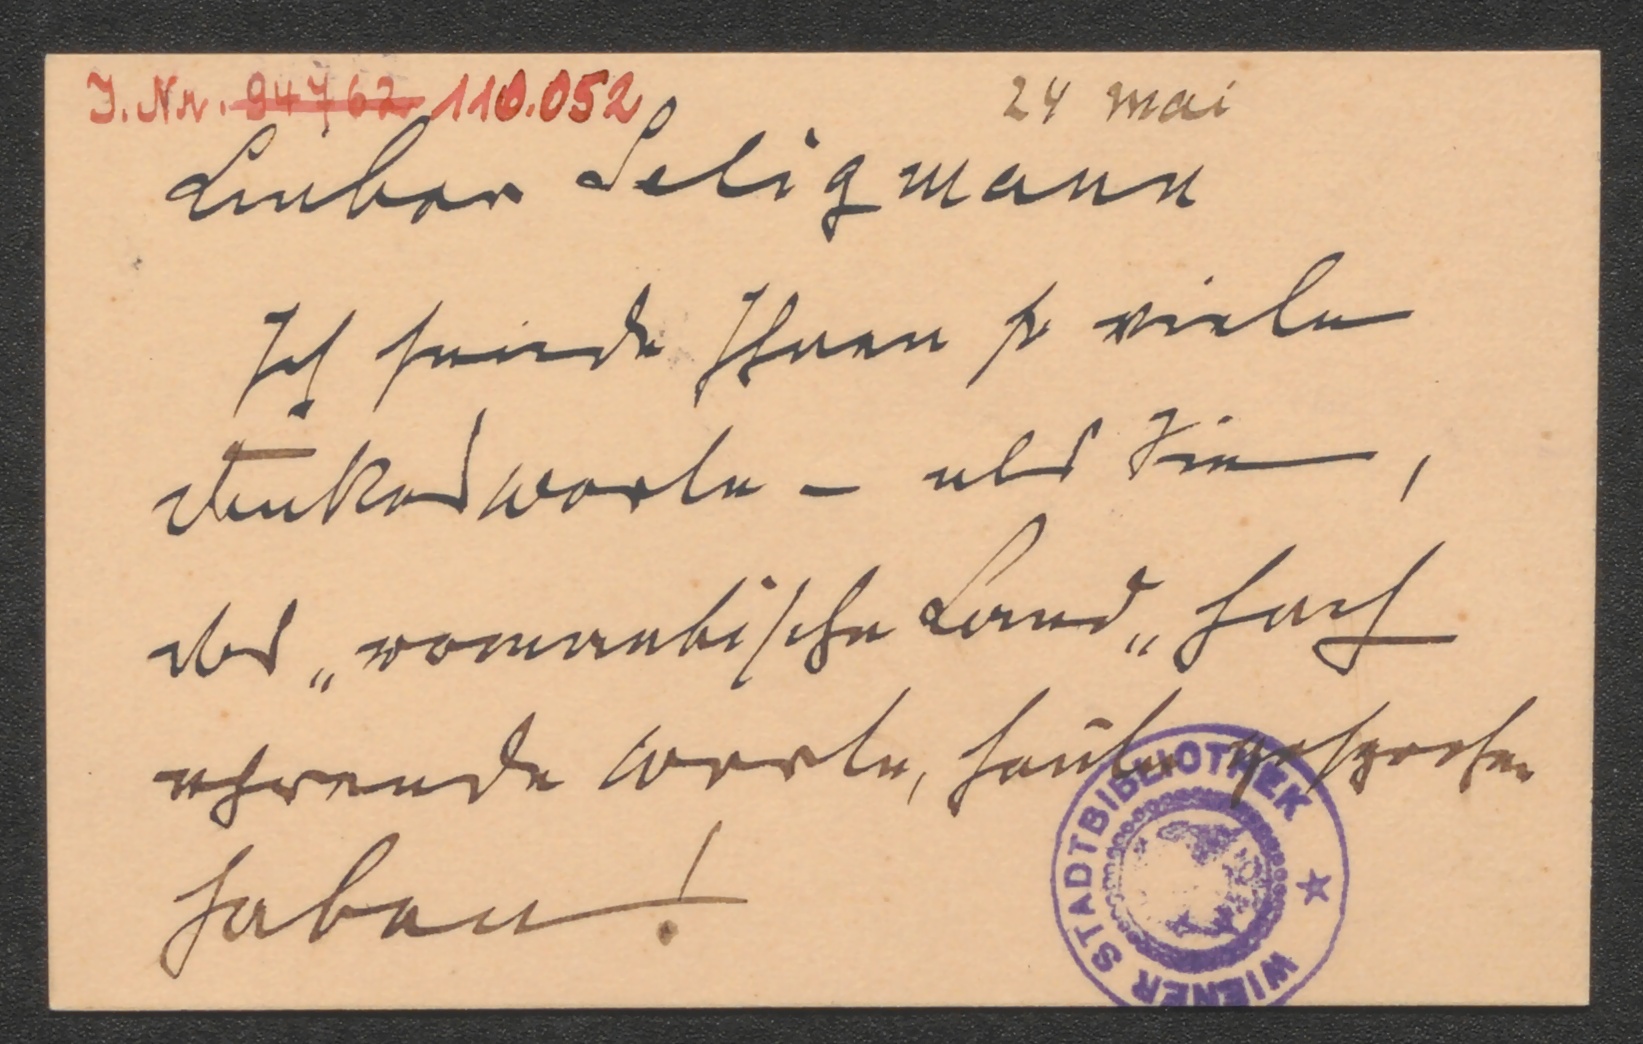 I. Nr. 94762 110.052
24 mai
Lieber Seligmann
Ich sende Ihnen so viele
Dankesworte – als Sie,
das „romantische Land„ hoch
ehrende Worte, heute gesprochen
haben!
WIENER STADTBIBLIOTHEK